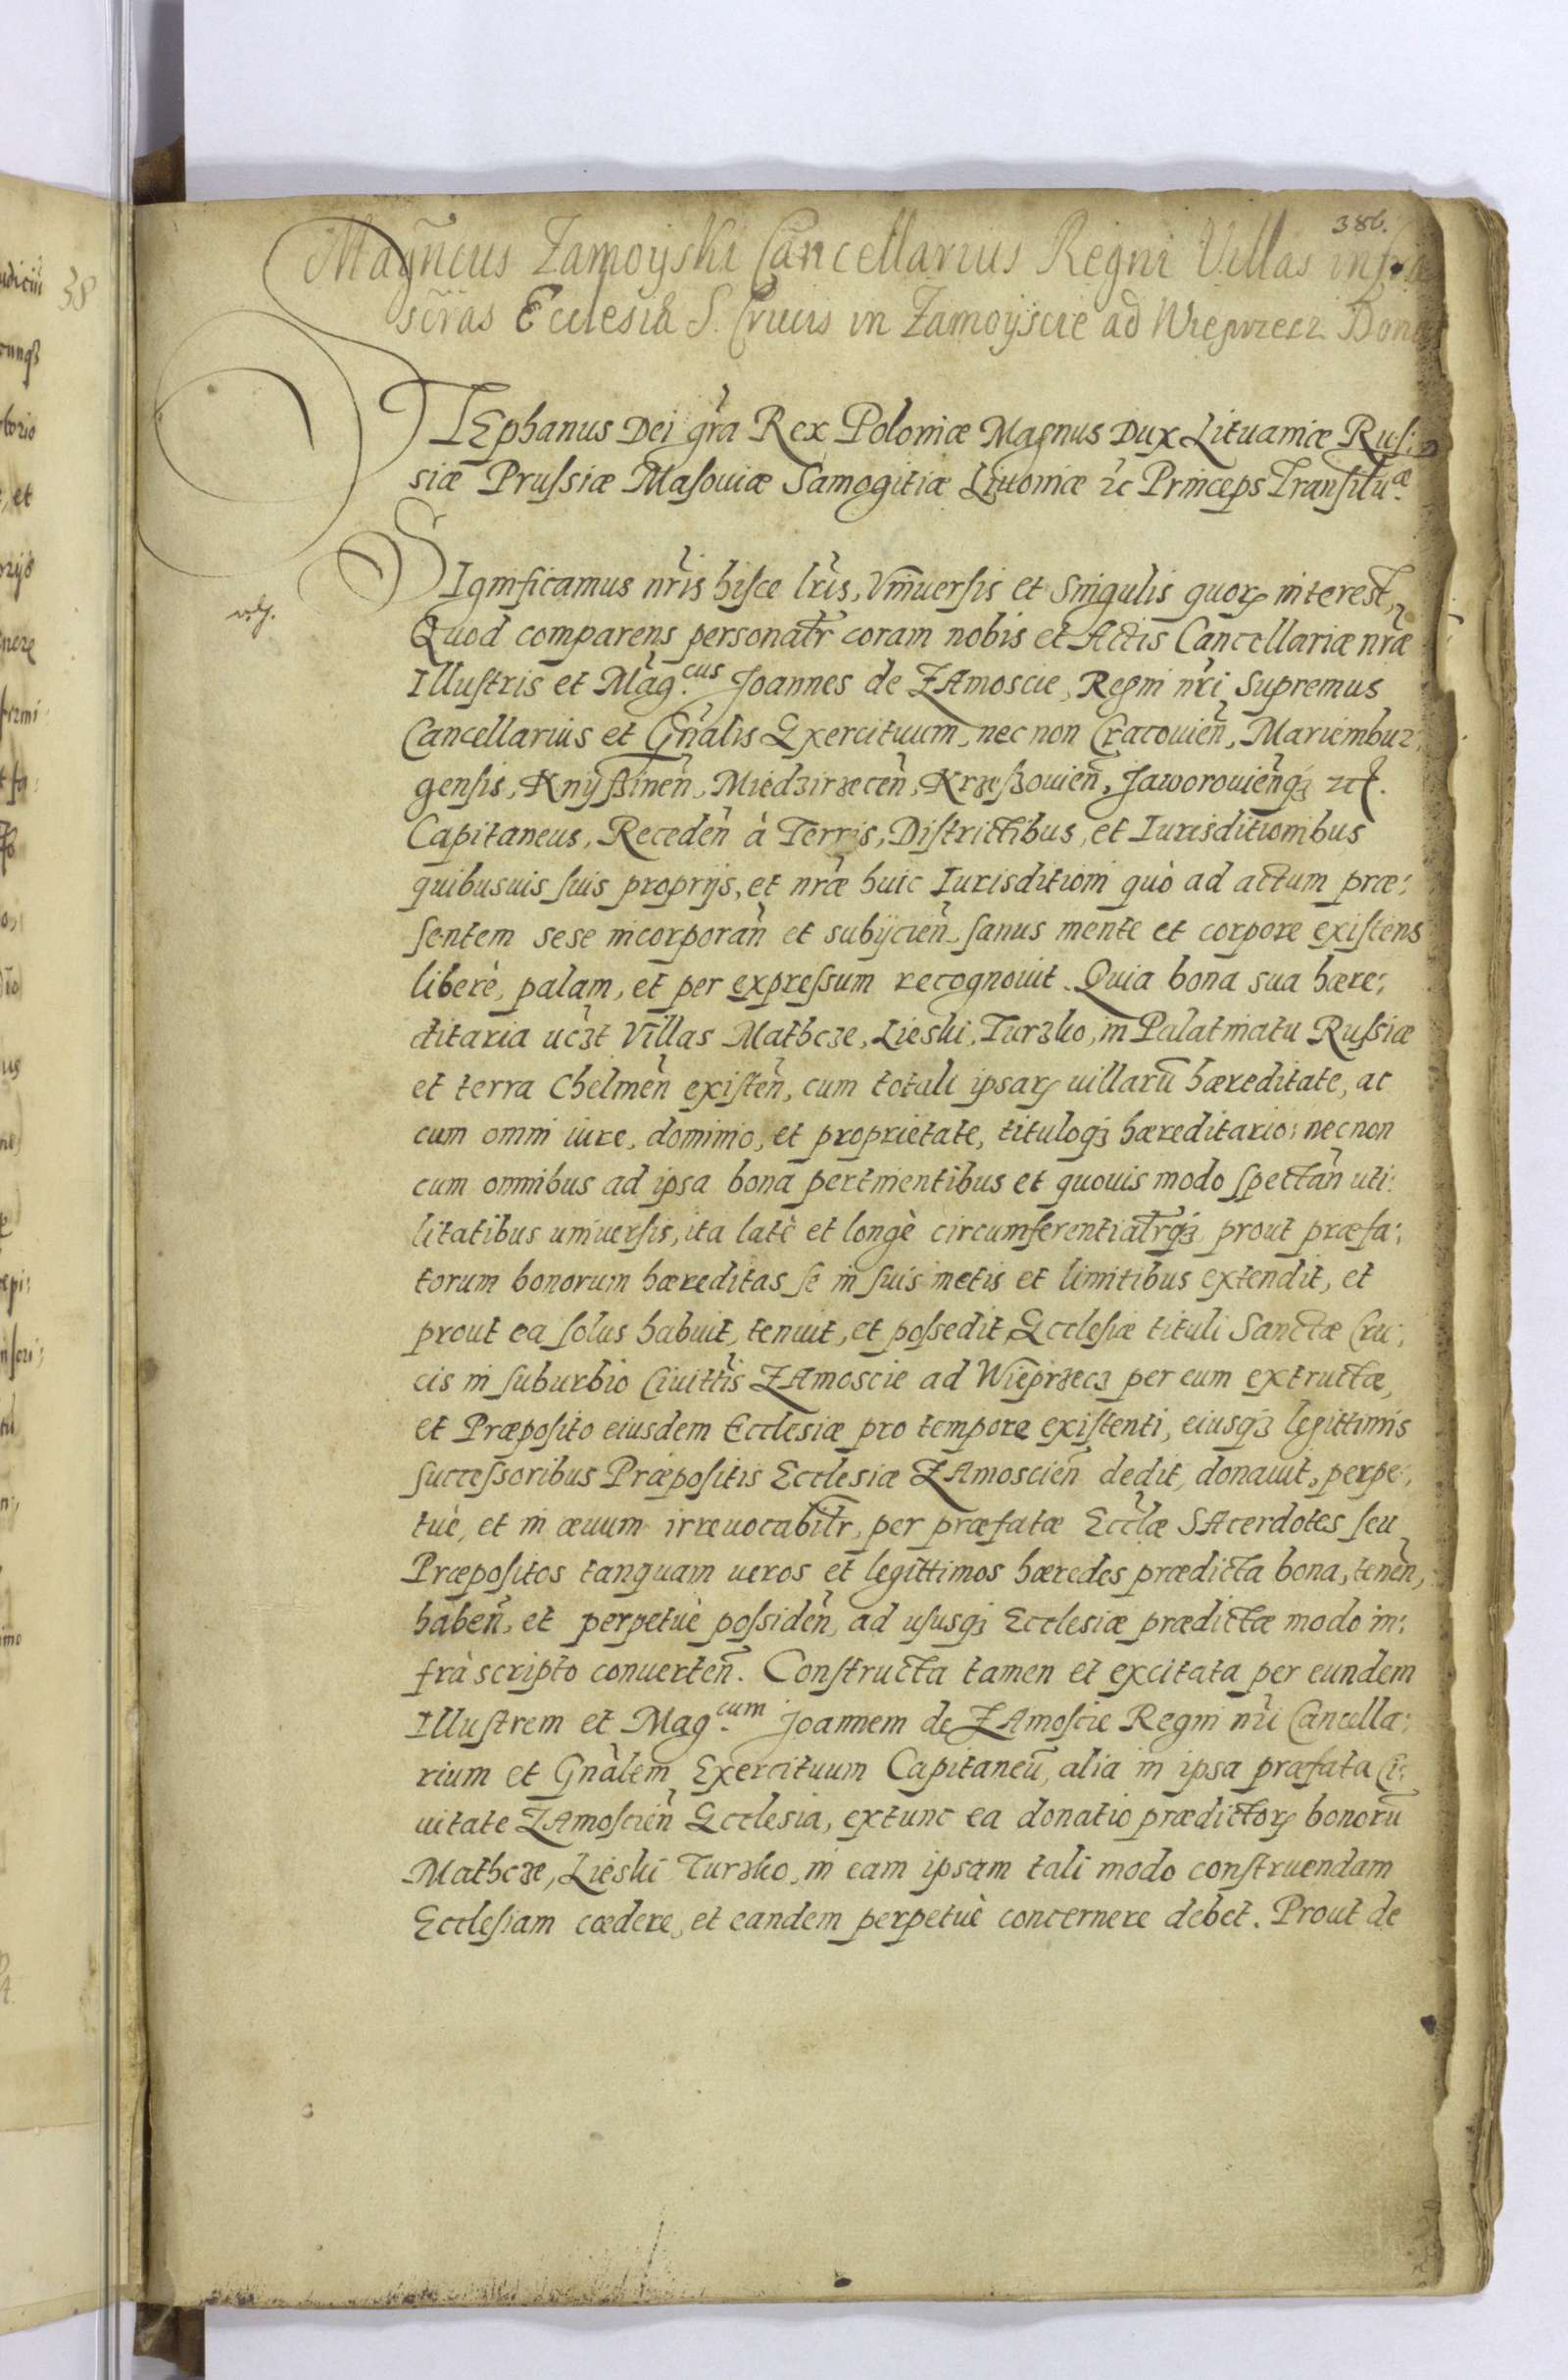 386.
Magñcus Zamoyski Cancellarius Regni Villas infra
scr̃as Ecclesiæ S. Crucis in Zamoyscie ad Wieprzecz Donat
STEphanus Dei gr̃a Rex Poloniæ Magnus Dux Lituaniæ Ruſ:
siæ Pruſsiæ Maſouiæ Samogitiæ Liuoniæ ꝛc Princeps Tranſilu.æ
SIgnificamus nr̃is hiſce lr̃is, Vniuerſis et Singulis quoꝝ interest,
Quod comparens personalr̃ coram nobis et Actis Cancellariæ nr̃æ
Illuſtris et Mag.cus Joannes de ZAmoscie, Regni nr̃i Supremus
Cancellarius et Gñalis Exercituum, nec non Cracouieñ, Mariembur:
gensis, Knÿſsineñ, Miedzirzeceñ, Krzeſzouieñ, Jaworouieñqȝ ꝛct.
Capitaneus, Recedeñ à Terris, Diſtrictibus, et Iurisditionibus
quibusuis ſuis proprijs, et nr̃æ huic Iurisditioni quò ad actum præ:
ſentem sese incorporañ et subijcieñ, ſanus mente et corpore exiſtens
liberè, palam, et per expreſsum recognouit. Quia bona sua hære:
ditaria uczt Villas Mathcze, Lieski, Turzko, in Palatinatu Ruſsiæ
et terra Chelmeñ exiſteñ, cum totali ipsaꝝ uillarū hæreditate, ac
cum omni iure, dominio, et proprietate, tituloqȝ hæreditario: necnon
cum omnibus ad ipsa bona pertinentibus et quouis modo ſpectañ uti:
litatibus uniuerſis, ita latè et longè circumferentialr̃qȝ prout præfa:
torum bonorum hæreditas ſe in ſuis metis et limitibus extendit, et
prout ea ſolus habuit, tenuit, et poſsedit, Eccleſiæ tituli Sanctæ Cru:
cis in ſuburbio Ciuittis̃ ZAmoscie ad Wieprzecz per eum extructæ,
et Præpoſito eiusdem Eccleſiæ pro tempore exiſtenti, eiusqȝ legittimis
ſucceſsoribus Præpoſitis Eccleſiæ ZAmoscieñ dedit, donauit, perpe:
tuè, et in æuum irreuocabilr̃, per præfatæ Eccl̃æ SAcerdotes ſeu
Præpoſitos tanquam ueros et legittimos hæredes prædicta bona, teneñ,
habeñ, et perpetuè poſsideñ, ad uſusqȝ Eccleſiæ prædictæ modo in:
frà scripto conuerteñ. Conſtructa tamen et excitata per eundem
Illuſtrem et Mag.cum Joannem de ZAmoſcie Regni nr̃i Cancella:
rium et Gñalem Exercituum Capitaneū, alia in ipsa præfata Ci:
uitate ZAmoſcieñ Eccleſia, extunc ea donatio prædictoꝝ bonorū
Mathcze, Lieski Turzko, in eam ipsam tali modo conſtruendam
Eccleſiam cædere, et eandem perpetuè concernere debet. Prout de